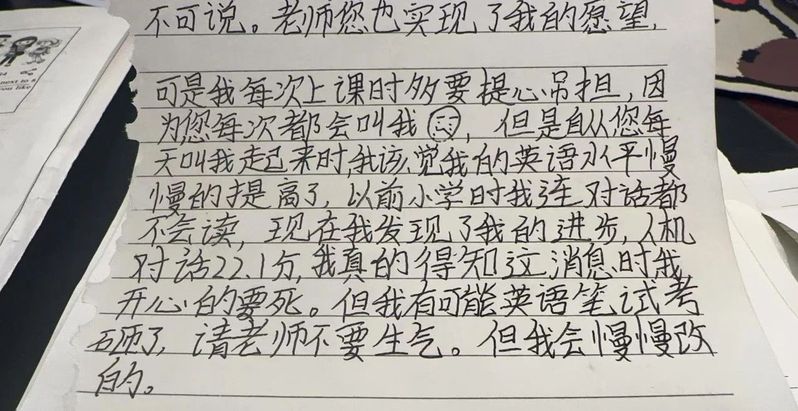 不可说。老师您也实现了我的愿望,
可是我每次上课时多要提心吊担,因
为您每次都会叫我,但是自从您每
天叫我起来时,我该觉我的英语水平慢
慢的提高了,以前小学时我连对话都
不会读,现在我发现了我的进步,人机
对话22.1分,我真的得知这消息时我
开心的要死。但我有可能英语笔试考
砸了,请老师不要生气。但我会慢慢改
的。